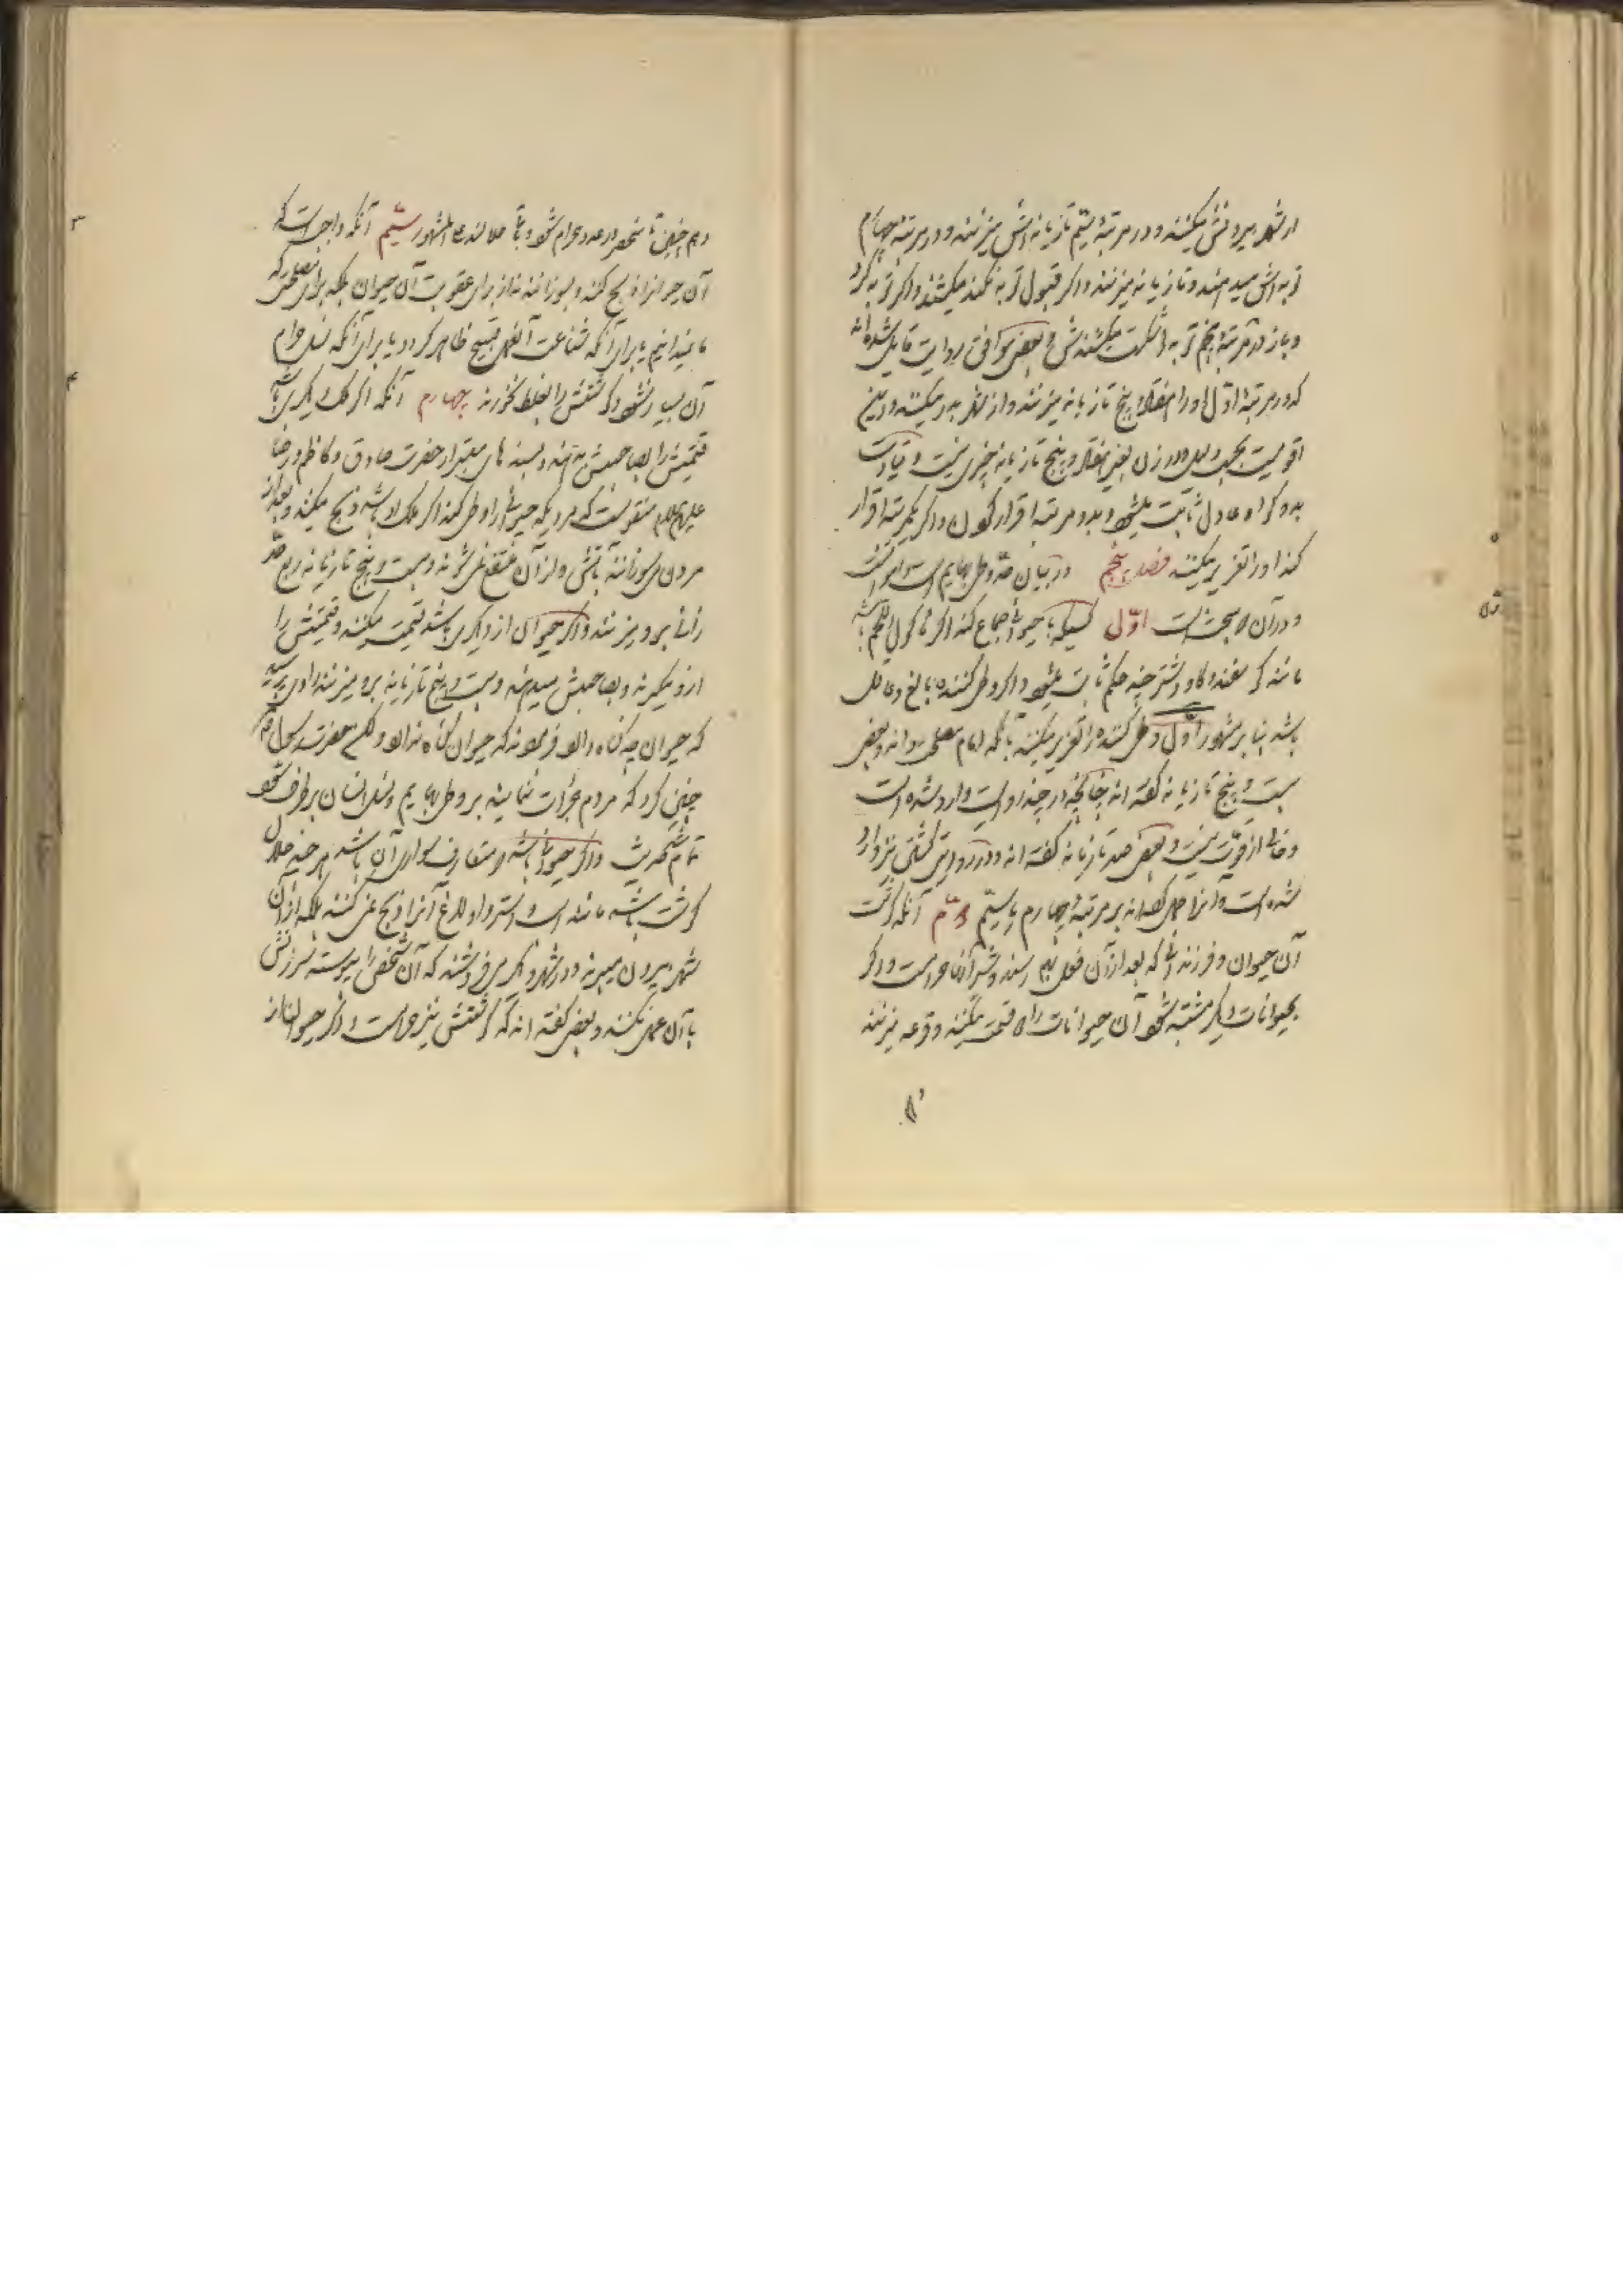 از شهر بیرونش میکنند و در مرتبهٔ سیّم تازیانه‌اش میزنند و در مرتبهٔ چهارم
توبه‌اش میدهند و تازیانه میزنند و اگر قبول توبه نکند میکشند و اگر توبه کرد
و باز در مرتبهٔ پنجم توبه را شکست میکشندش و بعضی موافق روایت قایل شده‌اند
که در مرتبهٔ اوّل او را هفتاد و پنج تازیانه میزنند و از شهر بدر میکنند و این
اقویست بحسب دلیل و در زن بغیر هفتاد و پنج تازیانه چیزی نیست و قیادت
بدو گواه عادل ثابت میشود و بدو مرتبه اقرار کردن و اگر یکمرتبه اقرار
کند او را تعزیر میکنند فصل پنجم در بیان حدّ وطی بهایم است
و در آن بحث است اوّل کسیکه با حیوانی جماع کند اگر مأکول اللحم باشد
مانند گوسفند و گاو و شتر چند حکم ثابت میشود و اگر وطی کننده بالغ و عاقل
باشد بنا بر مشهور اوّل وطی کننده را تعزیر میکنند بآنچه امام مصلحت داند و بعضی
بیست و پنج تازیانه گفته‌اند چنانچه در چند روایت وارد شده است
و خالی از قوّت نیست و بعضی صد تازیانه گفته‌اند و در روایتی کشتن نیز وارد
شده است و آنرا حمل کرده‌اند بر مرتبهٔ چهارم یا سیّم دوّم آنکه گوشت
آن حیوان و فرزندانی که بعد از آن فعل بهم رسند و شیر آنها حرامست و اگر
بحیوانات دیگر مشتبه شود آن حیوانات را دو قسمت میکنند و قرعه میزنند
و همچنین تا منحصر در عدد حرام شود و باقی حلالند علی المشهور سیّم آنکه واجبست که
آن حیوانرا ذبح کنند و بسوزانند نه از برای عقوبت آن حیوان بلکه برای مصلحتی که
ما نمیدانیم یا برای آنکه شناعت آن فعل قبیح ظاهر گردد یا برای آنکه نسل حرام
آن بسیار نشود و گوشتش را بغلط نخورند چهارم آنکه اگر ملک دیگری باشد
قیمتش را بصاحبش بدهند و بسندهای معتبر از حضرت صادق و کاظم و رضا
علیهم السلام منقولست که مردیکه حیوانی را وطی کند اگر ملک او باشد ذبح میکنند و بعد از
مردن میسوزانند بآتش و از آن منتفع نمی‌شوند و بیست و پنج تازیانه ربع حدّ
زانی برو میزنند و اگر حیوان از دیگری باشد قیمت میکنند و قیمتش را
ازو میگیرند و بصاحبش میدهند و بیست و پنج تازیانه برو میزنند راوی پرسید
که حیوان چه گناه دارد فرمودند که حیوان گناه ندارد و لیکن حضرت رسول
چنین کرد که مردم جرأت ننمایند بر وطی بهایم و نسل انسان برطرف نشود
و اگر حیوانی باشد که متعارف سواری آن باشد هر چند حلال
گوشت باشد مانند اسب و استر و الاغ آنرا ذبح نمی‌کنند بلکه از آن
شهر بیرون میبرند و در شهر دیگر می‌فروشند که آن شخص را پیوسته سرزنش
بآن عمل نکنند و بعضی گفته‌اند که گوشتش نیز حرامست و اگر حیوان از